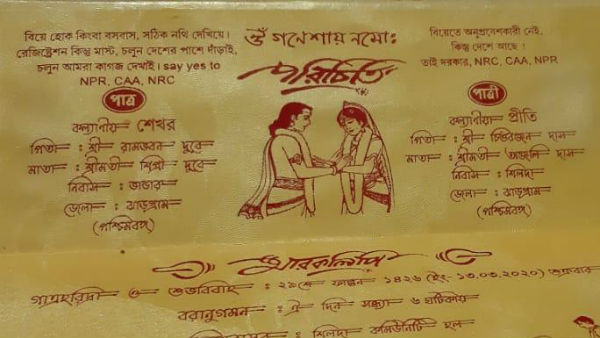 বিয়ে হোক কিংবা বসবাস, সঠিক নথি দেখিয়ে।
রেজিষ্ট্রেশন কিন্তু মাস্ট, চলুন দেশের পাশে দাঁড়াই,
চলুন আমরা কাগজ দেখাই। say yes to
NPR, CAA, NRC
ওঁ গণেশায় নমোঃ
পরিচিতি
বিয়েতে অনুপ্রবেশকারী নেই,
কিন্তু দেশে আছে !
তাই দরকার, NRC, CAA, NPR
পাত্র
কল্যাণীয় শেখর
পিতা : শ্রী রামভবন দুবে
মাতা : শ্রীমতী শিপ্রী দুবে
নিবাস :
জেলা : ঝাড়গ্রাম
(পশ্চিমবঙ্গ)
পাত্রী
কল্যাণীয়া প্রীতি
পিতা : শ্রী চিত্তরঞ্জন দাস
মাতা : শ্রীমতী অঞ্জলি দাস
নিবাস : শিলদা
জেলা : ঝাড়গ্রাম
(পশ্চিমবঙ্গ)
স্মারকলিপি
গাত্রহরিদ্রা ও শুভবিবাহ : ২৯শে ফাল্গুন ১৪২৬ (ইং ১৩.০৩.২০২০) শুক্রবার
বরানুগমন : ঐ দিন সন্ধ্যা ৬ ঘটিকায়
: শিলদা কমিউনিটি হল